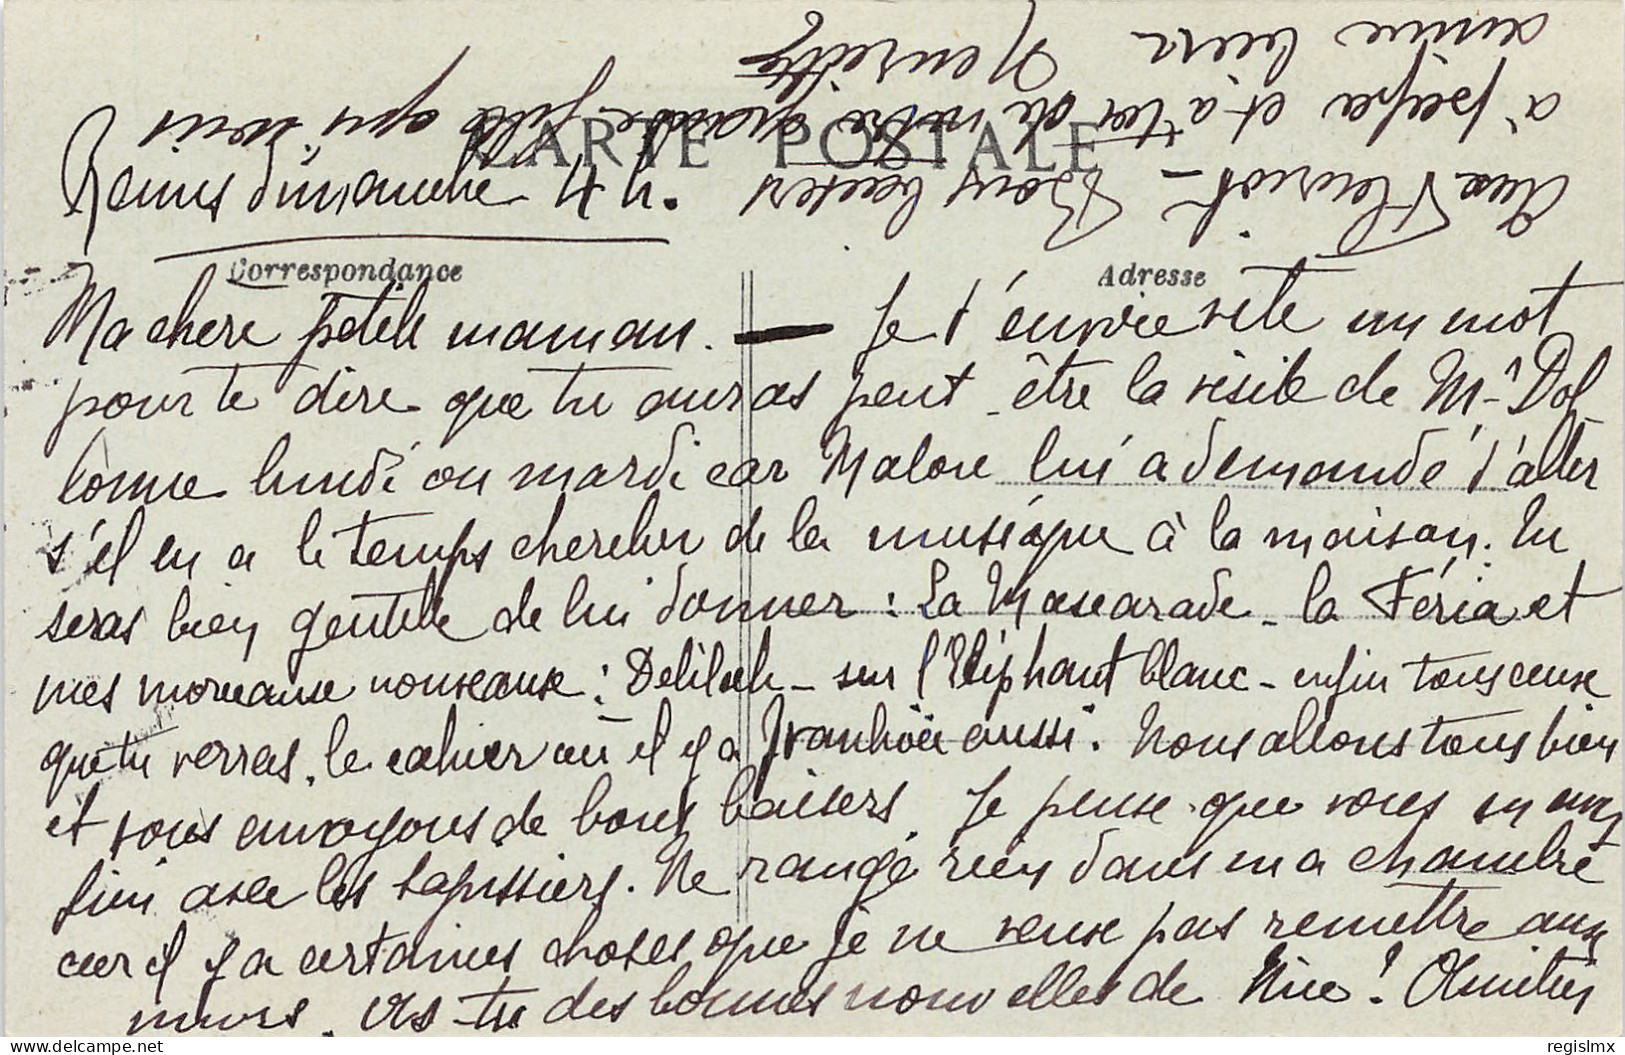 CARTE POSTALE
Reims Dimanche 4 h.
Correspondance
Adresse
Ma chere petite maman. — Je t'envoie vite un mot
pour te dire que tu auras peut-être la visite de Mr Dol
lonne lundi ou mardi car Malou lui a demandé d'aller
s'il en a le temps chercher de la musique à la maison. Tu
seras bien gentille de lui donner : La Mascarade - la Féria et
mes morceaux nouveaux : Delilah - sur l'Eléphant blanc - enfin tous ceux
que tu verras, le cahier où il y a Ivanhoë aussi. Nous allons tous bien
et vous envoyons de bons baisers. Je pense que vous en avez
fini avec les tapissiers. Ne range rien dans ma chambre
car il y a certaines choses que je ne veux pas remettre aux
murs. As-tu des bonnes nouvelles de Nice? Amitiés
aux Fleuriot - Bons baisers
à papa et à toi de votre grande fille qui vous
aime bien Henriette
regislmx
delcampe.net